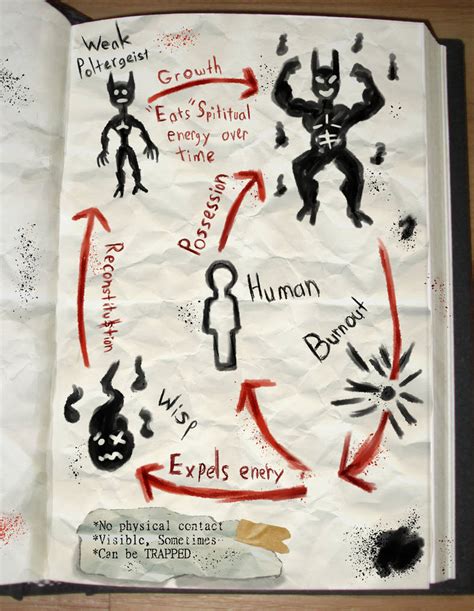 Weak
Poltergeist
Growth
"Eats" Spititual
energy over
time
Possession
Reconstitution
Human
Burnout
Wisp
Expels enery
*No physical contact
*Visible, Sometimes
*Can be TRAPPED